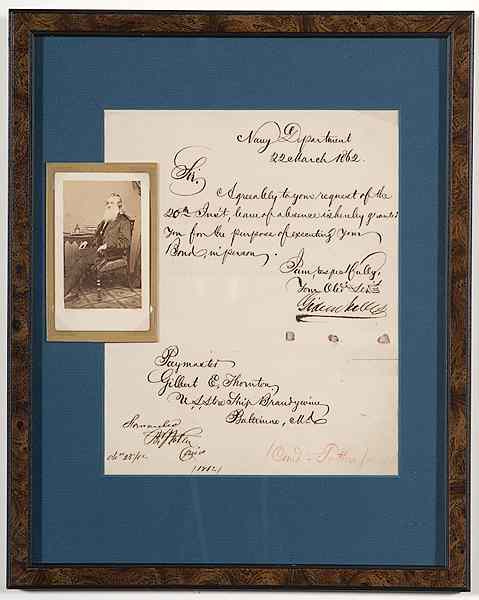 Navy Department
22 March 1862.
Sir,
Agreeably to your request of the
20th Inst, leave of absence is hereby granted
you for the purpose of executing your
Bond, in person.
I am respectfully,
Your Obt Servt
Gideon Welles
Paymaster
Gilbert E. Thornton
U.S. Store Ship Brandywine
Baltimore, Md
Forwarded